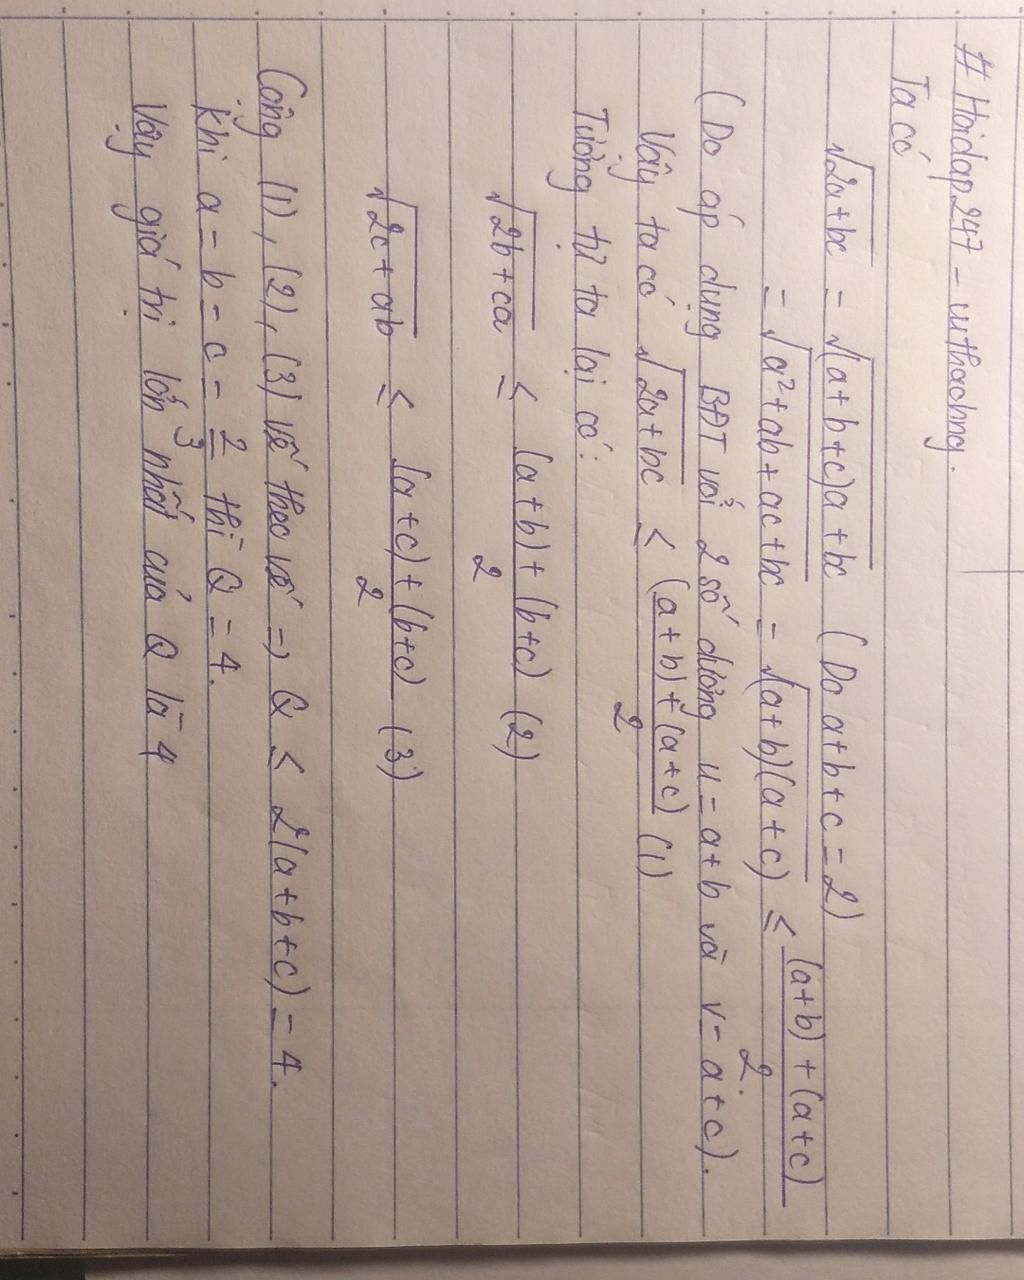 # Hoidap247 - mthachng.
Ta có
√2a+bc = √(a+b+c)a+bc (Do a+b+c=2)
= √a²+ab+ac+bc = √(a+b)(a+c) ≤ (a+b)+(a+c)/2.
(Do áp dụng BĐT với 2 số dương u=a+b và v=a+c).
Vậy ta có √2a+bc ≤ (a+b)+(a+c)/2 (1)
Tương tự ta lại có:
√2b+ca ≤ (a+b)+(b+c)/2 (2)
√2c+ab ≤ (a+c)+(b+c)/2 (3)
Cộng (1), (2), (3) vế theo vế => Q ≤ 2(a+b+c)=4.
Khi a=b=c=2/3 thì Q=4.
Vậy giá trị lớn nhất của Q là 4